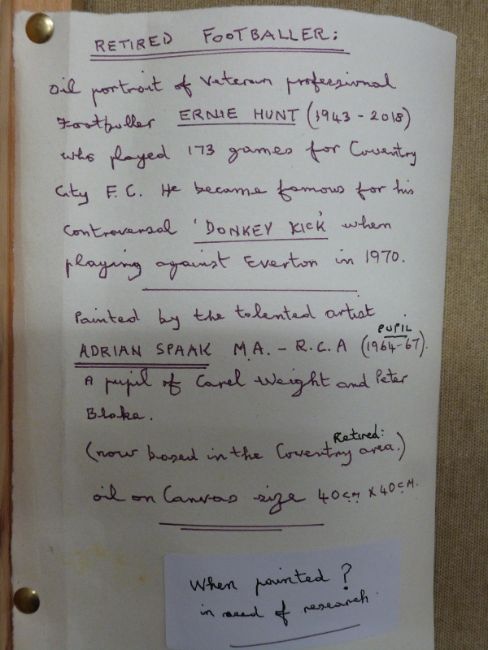 RETIRED FOOTBALLER:
Oil portrait of Veteran professional
Footballer ERNIE HUNT (1943 - 2018)
who played 173 games for Coventry
City F.C. He became famous for his
Controversal 'DONKEY KICK' when
playing against Everton in 1970.
Painted by the talented artist
PUPIL
ADRIAN SPAAK M.A. - R.C.A (1964-67).
A pupil of Carel Weight and Peter
Blake.
Retired:
(now based in the Coventry area.)
oil on Canvas size 40cm x 40cm.
When painted?
in need of research